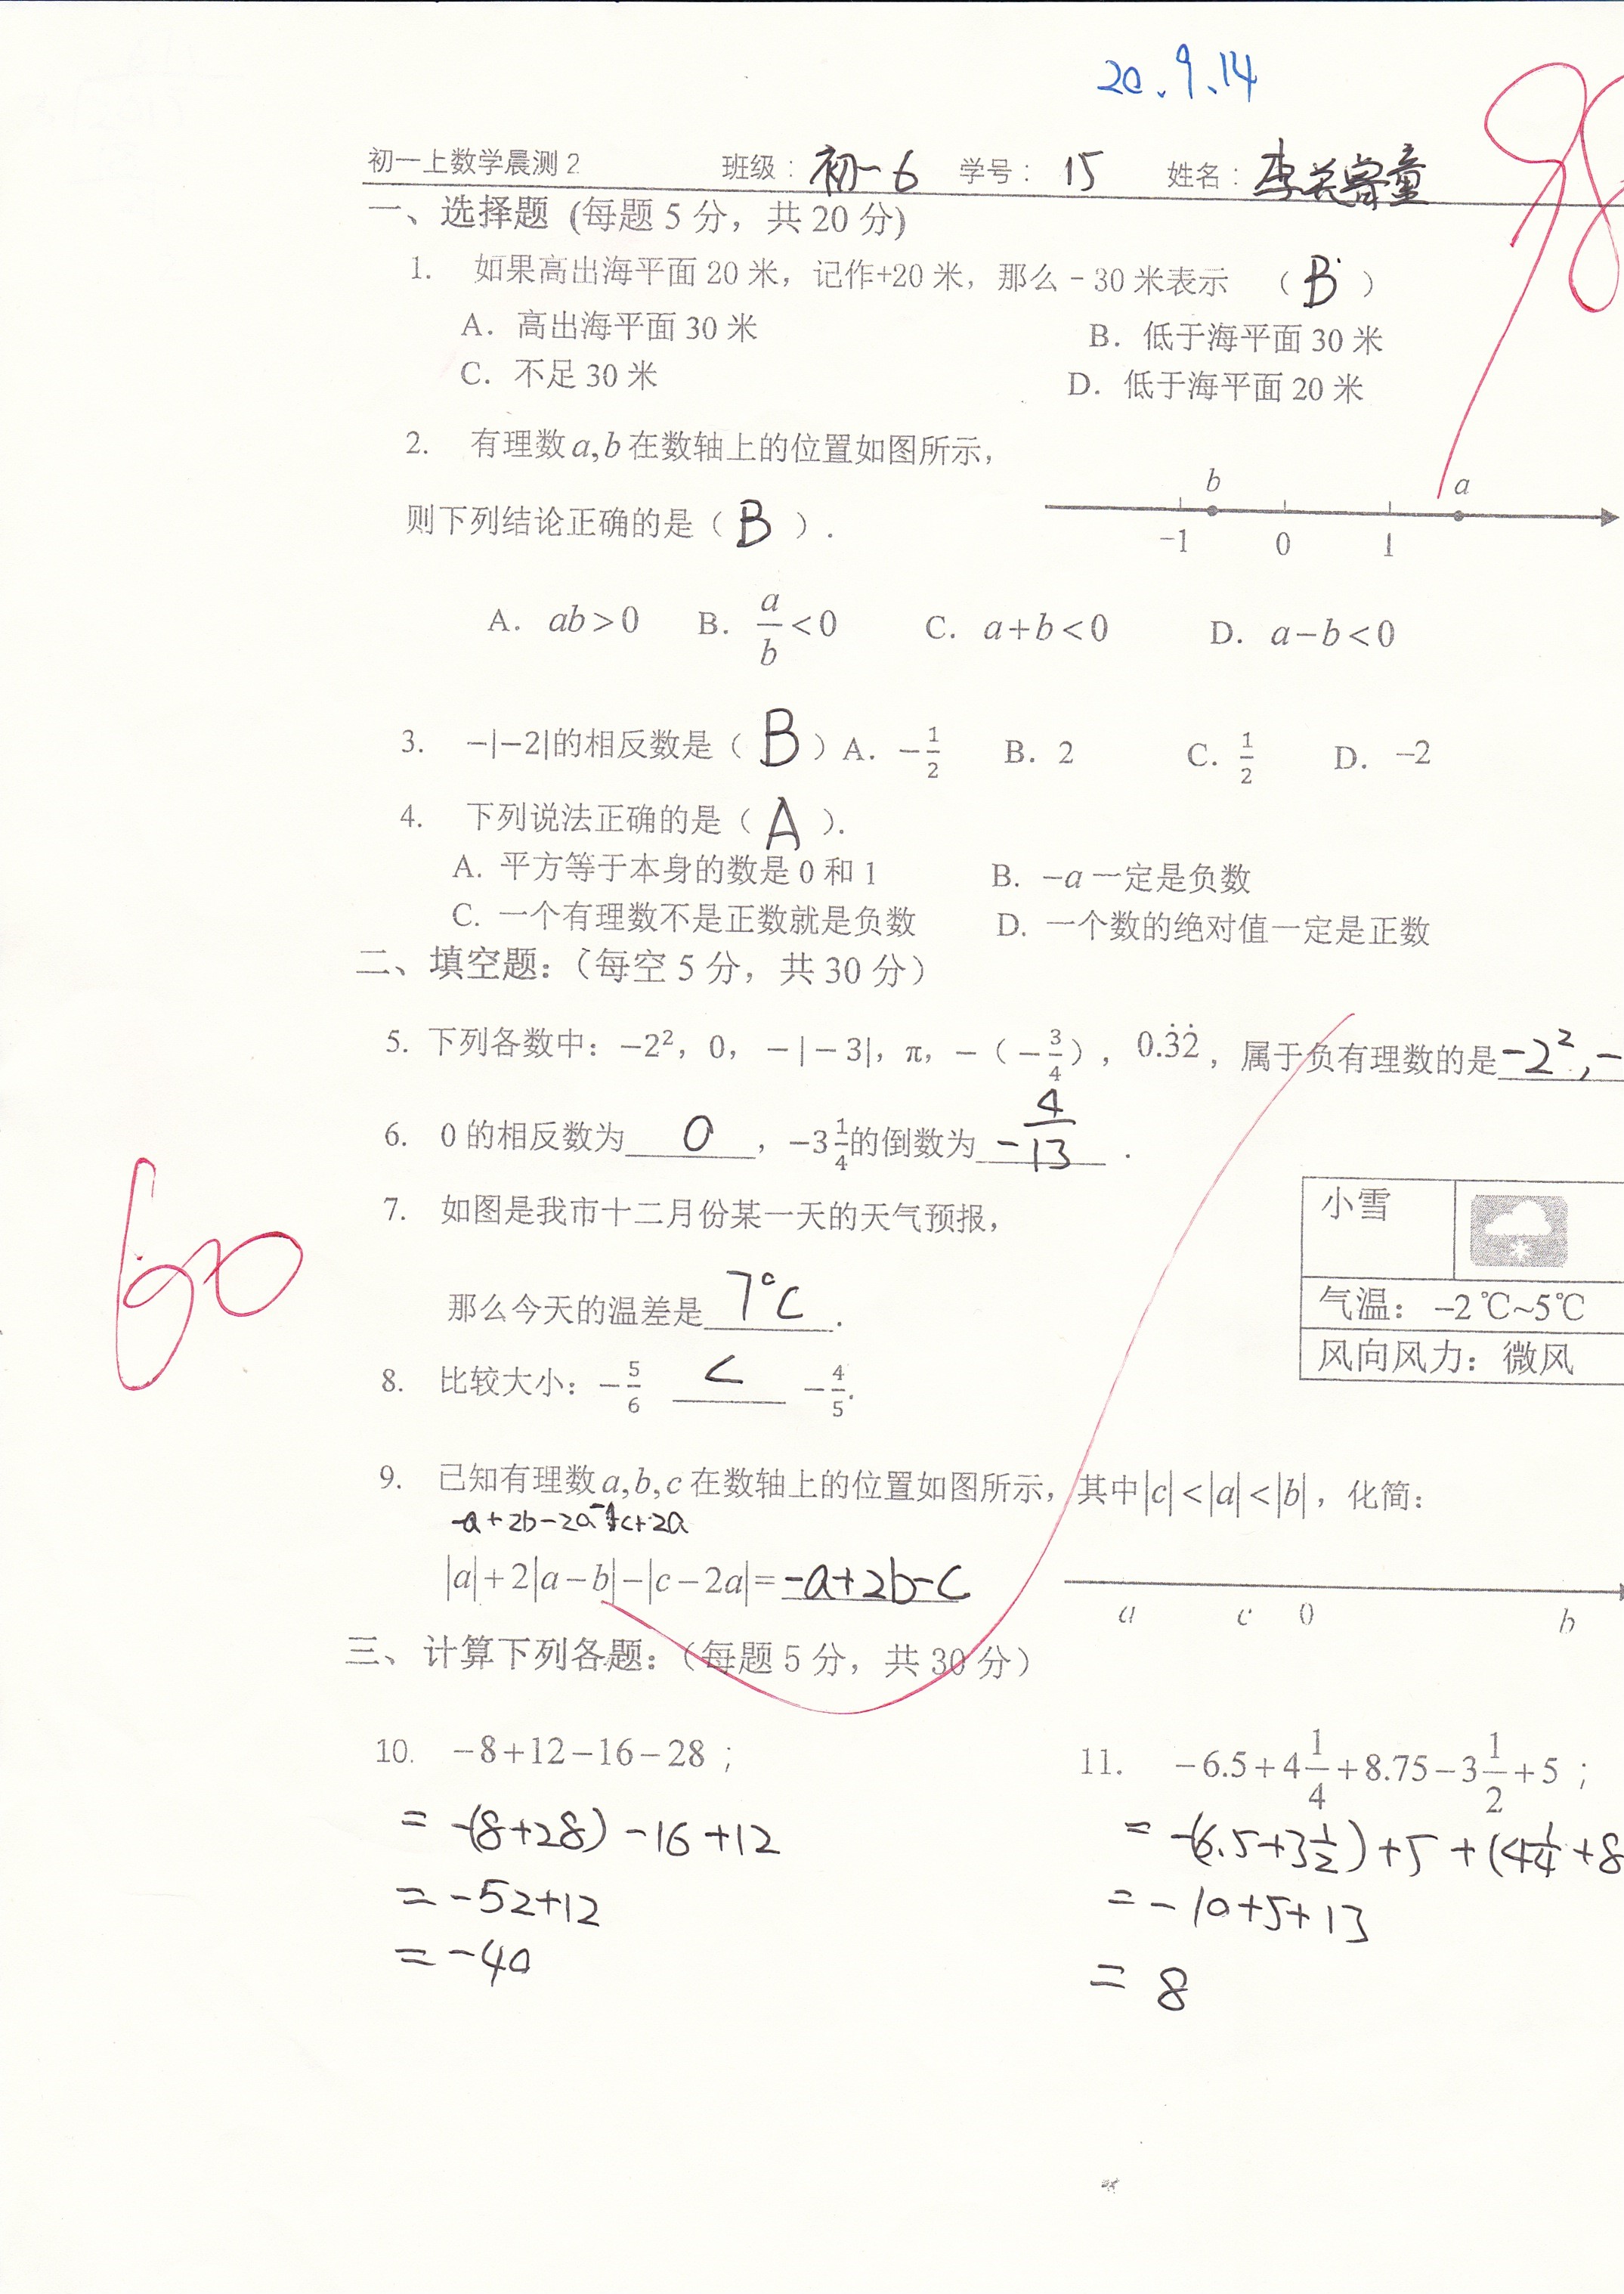 20.9.14
98
初一上数学晨测 2 班级：初一6 学号：15 姓名：李
一、选择题 (每题 5 分，共 20 分)
1. 如果高出海平面 20 米，记作+20 米，那么﹣30 米表示 （ B ）
A．高出海平面 30 米 B．低于海平面 30 米
C．不足 30 米 D．低于海平面 20 米
2. 有理数 a,b 在数轴上的位置如图所示，
b a
则下列结论正确的是（ B ）.
-1 0 1
A． ab>0 B． a/b<0 C． a+b<0 D． a-b<0
3. -|-2|的相反数是（ B ）A．-1/2 B．2 C．1/2 D．-2
4. 下列说法正确的是（ A ）.
A. 平方等于本身的数是 0 和 1 B. -a 一定是负数
C. 一个有理数不是正数就是负数 D. 一个数的绝对值一定是正数
二、填空题：（每空 5 分，共 30 分）
5. 下列各数中：-2²，0，-|-3|，π，-（-3/4），0.3̇2̇，属于负有理数的是-2²,-
6. 0 的相反数为 0 ，-3 1/4的倒数为 -4/13 .
7. 如图是我市十二月份某一天的天气预报，
小雪
那么今天的温差是 7°C .
气温： -2℃~5℃
风向风力：微风
60
8. 比较大小：-5/6 < -4/5.
9. 已知有理数 a,b,c 在数轴上的位置如图所示，其中|c|<|a|<|b|，化简：
|a|+2|a-b|-|c-2a|=-a+2b-c
a c 0 b
三、计算下列各题：（每题 5 分，共 30 分）
10. -8+12-16-28 ；
= -(8+28)-16+12
= -52+12
= -40
11. -6.5+4 1/4+8.75-3 1/2+5 ；
= -(6.5+3 1/2)+5+(4 1/4+8
= -10+5+13
= 8